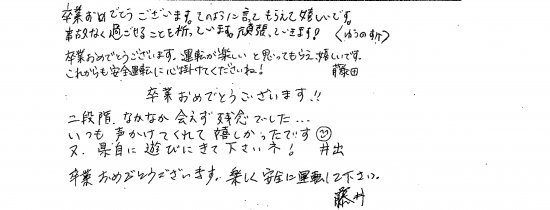 卒業おめでとうございます。そのように言ってもらえて嬉しいです。
事故なく過ごせることを祈っています。頑張っていきます!
卒業おめでとうございます。運転が楽しいと思ってもらえ、嬉しいです。
これからも安全運転に心掛けてくださいね! 藤田
卒業おめでとうございます!!
二段階、なかなか会えず残念でした…
いつも声かけてくれて嬉しかったです☺
又、県自に遊びにきて下さいネ! 井出
卒業おめでとうございます。楽しく安全に運転して下さい。
藤井